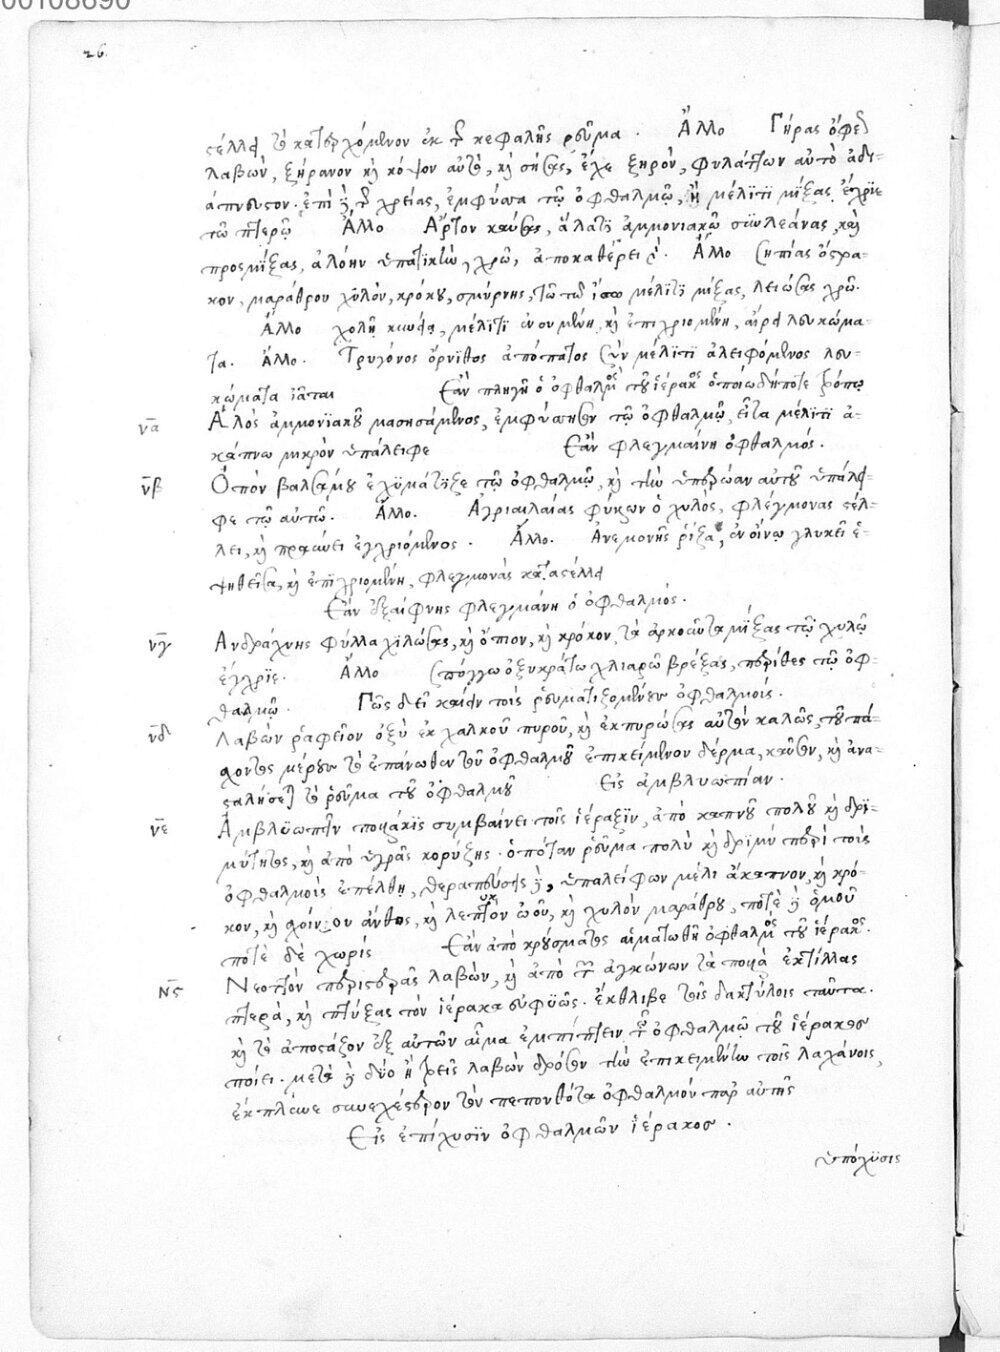 00108690
26.
στέλλει τὸ κατερχόμενον ἐκ τῆς κεφαλῆς ρεῦμα. Ἄλλο Γήρας ὄφεως
λαβὼν, ξήρανον καὶ κόψον αὐτὸ, καὶ σήσας, ἔχε ξηρὸν, φυλάττων αὐτὸ ἀδι-
άπνευστον. ἐπὶ δὲ τῆς χρείας, ἐμφύσα τῷ ὀφθαλμῷ, ἢ μέλιτι μίξας ἔγχριε
τῷ πτερῷ Ἄλλο Ἄρτον καύσας, ἅλατι ἀμμονιακῷ συλλεάνας, καὶ
προσμίξας, ἀλόην ὑπατικὴν, χρῶ, ἀποκαθέρει Ἄλλο Σηπίας ὄστρα-
κον, μαράθρου χυλὸν, κρόκου, σμύρνης, τῶν ἴσω μέλιτι μίξας, λειώσας χρῶ.
Ἄλλο χολὴ μέλιτι ἑνουμένη, καὶ ἐπιχριομένη, αἴρει λευκώμα-
τα. Ἄλλο. Τρυγόνος ὄρνιθος ἀπόπατος σὺν μέλιτι ἀλειφόμενος λευ-
κώματα ἰᾶται Ἐὰν πληγῇ ὁ ὀφθαλμὸς τοῦ ἱέρακος ὁποιωδήποτε τρόπῳ
να Ἁλὸς ἀμμονιακοῦ μασησάμενος, ἐμφύσησον τῷ ὀφθαλμῷ, εἶτα μέλιτι ἀ-
κάπνω μικρὸν ὑπάλειφε Ἐὰν φλεγμαίνῃ ὀφθαλμός.
νβ Ὀπὸν βαλσάμου ἐγχυμάτιζε τῷ ὀφθαλμῷ, καὶ τὴν ὑπερώαν αὐτοῦ ὑπάλει-
φε τῷ αὐτῷ. Ἄλλο. Ἀγριελαίας φύλλων ὁ χυλὸς, φλέγμονας στέλ-
λει, καὶ πραΰνει ἐγχριόμενος. Ἄλλο. Ἀνεμονῆς ρίζα, ἐν οἴνῳ γλυκεῖ ἑ-
ψηθεῖσα, καὶ ἐπιχριομένη, φλεγμονὰς καταστέλλει
Ἐὰν ἐξαίφνης φλεγμάνῃ ὁ ὀφθαλμός.
νγ Ἀνδράχνης φύλλα χιλώσας, καὶ ὄπιον, καὶ κρόκον, τὰ ἀρκοῦντα μίξας τῷ χυλῷ
ἔγχριε. Ἄλλο Σπόγγω ὀξυκράτω χλιαρῷ βρέξας, περίθες τῷ ὀφ-
θαλμῷ. Πῶς δεῖ καίειν τοὺς ῥευματιζομένους ὀφθαλμούς.
νδ Λαβὼν ῥαφεῖον ὀξὺ ἐκ χαλκοῦ πυροῦ, καὶ ἐκπυρώσας αὐτὸν καλῶς, τοῦ πά-
σχοντος μέρους τὸ ἐπάνωθεν τοῦ ὀφθαλμοῦ ἐπικείμενον δέρμα, καῦσον, καὶ ἀνα-
σταλήσεται τὸ ῥεῦμα τοῦ ὀφθαλμοῦ Εἰς ἀμβλυωπίαν.
νε Ἀμβλυωπεῖν πολλάκις συμβαίνει τοῖς ἱέραξιν, ἀπὸ καπνοῦ πολοῦ καὶ δρι-
μύτητος, καὶ ἀπὸ ὑγρᾶς κορύζης. ὁπόταν ρεῦμα πολὺ καὶ δριμὺ περὶ τοὺς
ὀφθαλμοὺς ἐπέλθῃ, θεραπεύσεις δὲ, ὑπαλείφων μέλι ἄκαπνον, καὶ κρό-
κον, καὶ σχοίνου ἄνθος, καὶ λεπτὸν ὠοῦ, καὶ χυλὸν μαράθρου, ποτὲ δὲ ὁμοῦ
ποτὲ δὲ χωρίς Ἐὰν ἀπὸ κρύσματος αἱματωθῇ ὀφθαλμὸς τοῦ ἱέρακος.
νς Νεοττὸν περιστερᾶς λαβὼν, καὶ ἀπὸ τῶν ἀγκώνων τὰ πολλὰ ἐκτίλλας
πτερὰ, καὶ πτύξας τὸν ἱέρακα εὐφυῶς. ἔκθλιβε τοῖς δακτύλοις ταῦτα.
καὶ τὸ ἀποστάζον ἐξ αὐτῶν αἷμα ἐμπίπτειν τῷ ὀφθαλμῷ τοῦ ἱέρακος
ποίει. μετὰ δὲ δύο ἢ τρεῖς λαβὼν δρόσον τὴν ἐπικειμένην τοῖς λαχάνοις,
ἔκπλυνε συνεχέστερον τὸν πεπονθότα ὀφθαλμὸν παρ αὐτῆς
Εἰς ἐπίχυσιν ὀφθαλμῶν ἱέρακος.
ὑπόχυσις